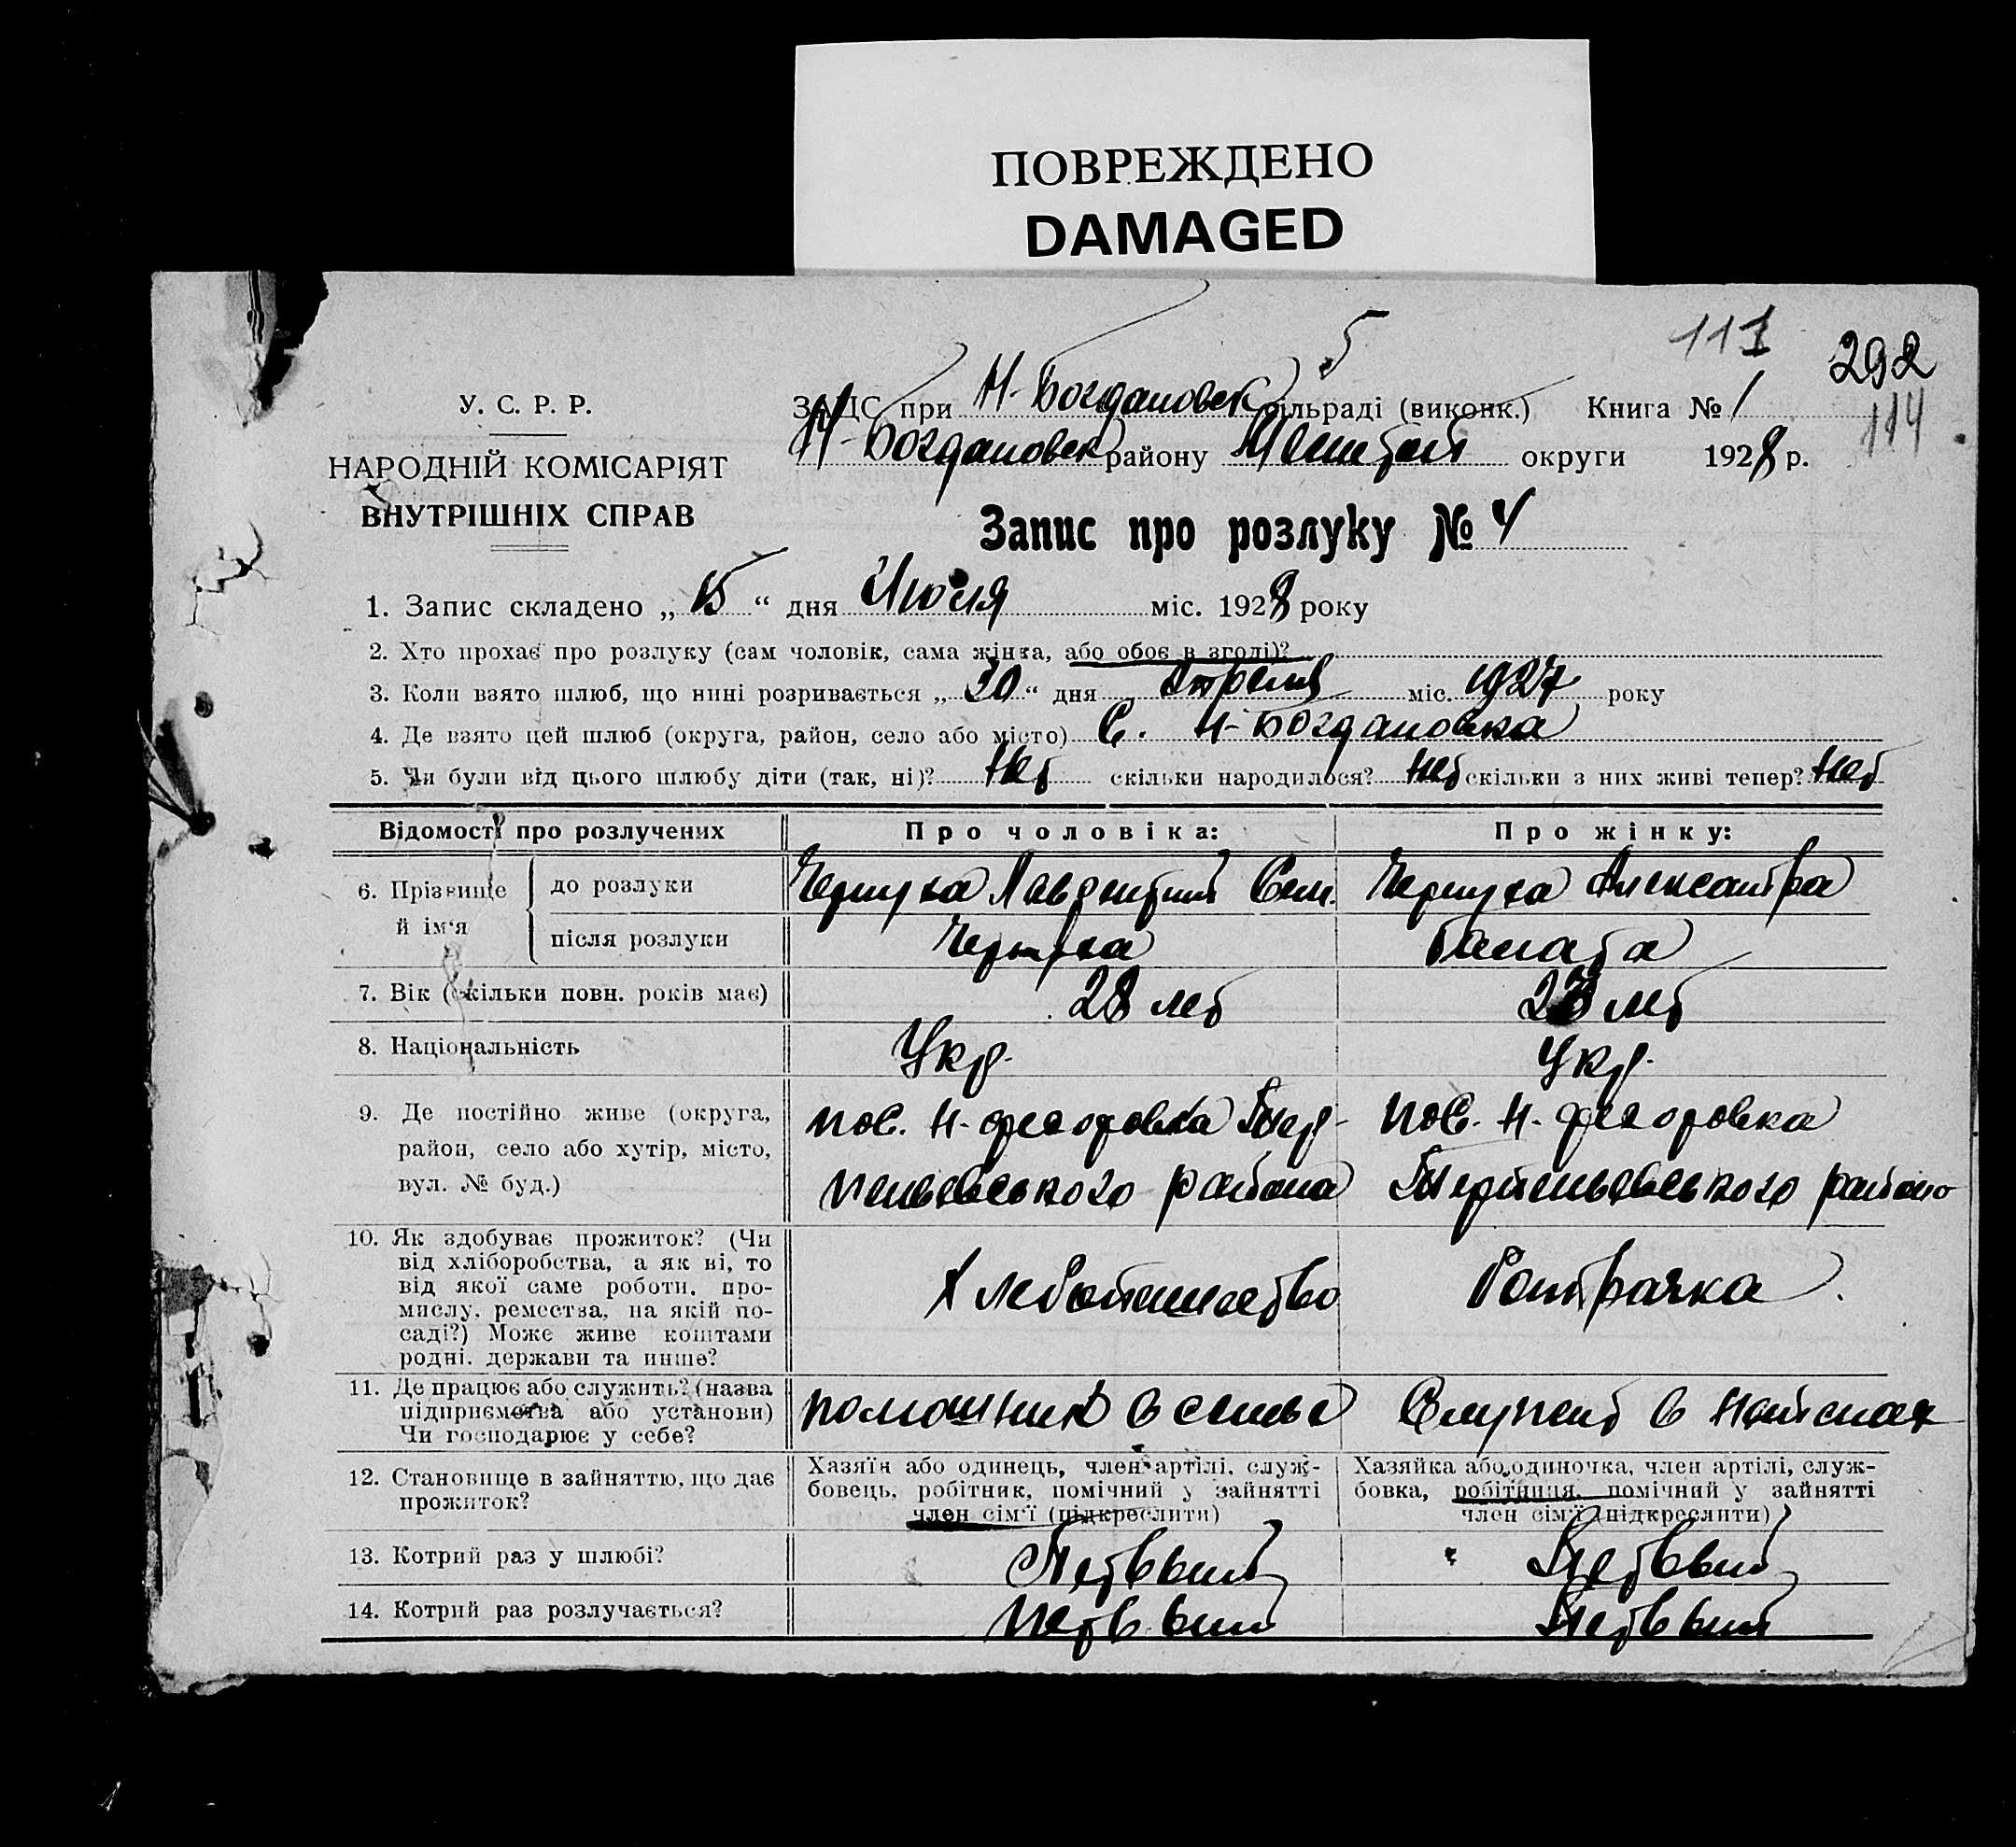 ПОВРЕЖДЕНО
DAMAGED
111
292
114
5
У. С. Р. Р.
НАРОДНІЙ КОМІСАРІЯТ
ВНУТРІШНІХ СПРАВ
ЗАГС при Н-Богдановск сільраді (виконк.) Книга № 1
Н-Богдановск району округи 1928 р.
Запис про розлуку № 4
1. Запис складено „ 15 “ дня Июля міс. 1928 року
2. Хто прохає про розлуку (сам чоловік, сама жінка, або обоє в згоді)?
3. Коли взято шлюб, що нині розривається „ 30 “ дня Апреля міс. 1927 року
4. Де взято цей шлюб (округа, район, село або місто) С. Н-Богдановка
5. Чи були від цього шлюбу діти (так, ні)? Нет скільки народилося? Нет скільки з них живі тепер? Нет
Відомості про розлучених
Про чоловіка:
Про жінку:
6. Прізвище й ім'я
до розлуки
Лаврентий Сем.
Александра
після розлуки
7. Вік (скільки повн. років має)
28 лет
23 лет
8. Національність
Укр.
Укр.
9. Де постійно живе (округа, район, село або хутір, місто, вул. № буд.)
пос. Н-федоровка Терпеньевського района
пос. Н-федоровка
Терпеньевського района
10. Як здобуває прожиток? (Чи
від хліборобства, а як ні, то
від якої саме роботи, про-
мислу, ремества, на якій по-
саді?) Може живе коштами
родні, держави та инше?
Хлебопашество
Батрачка
11. Де працює або служить? (назва
підприємства або установи)
Чи господарює у себе?
помошник в семье
Служит в
12. Становище в зайняттю, що дає
прожиток?
Хазяїн або одинець, член артілі, служ-
бовець, робітник, помічний у зайнятті
член сім'ї (підкреслити)
Хазяйка або одиночка, член артілі, служ-
бовка, робітниця, помічний у зайнятті
член сім'ї (підкреслити)
13. Котрий раз у шлюбі?
Первый
Первый
14. Котрий раз розлучається?
Первый
Первый